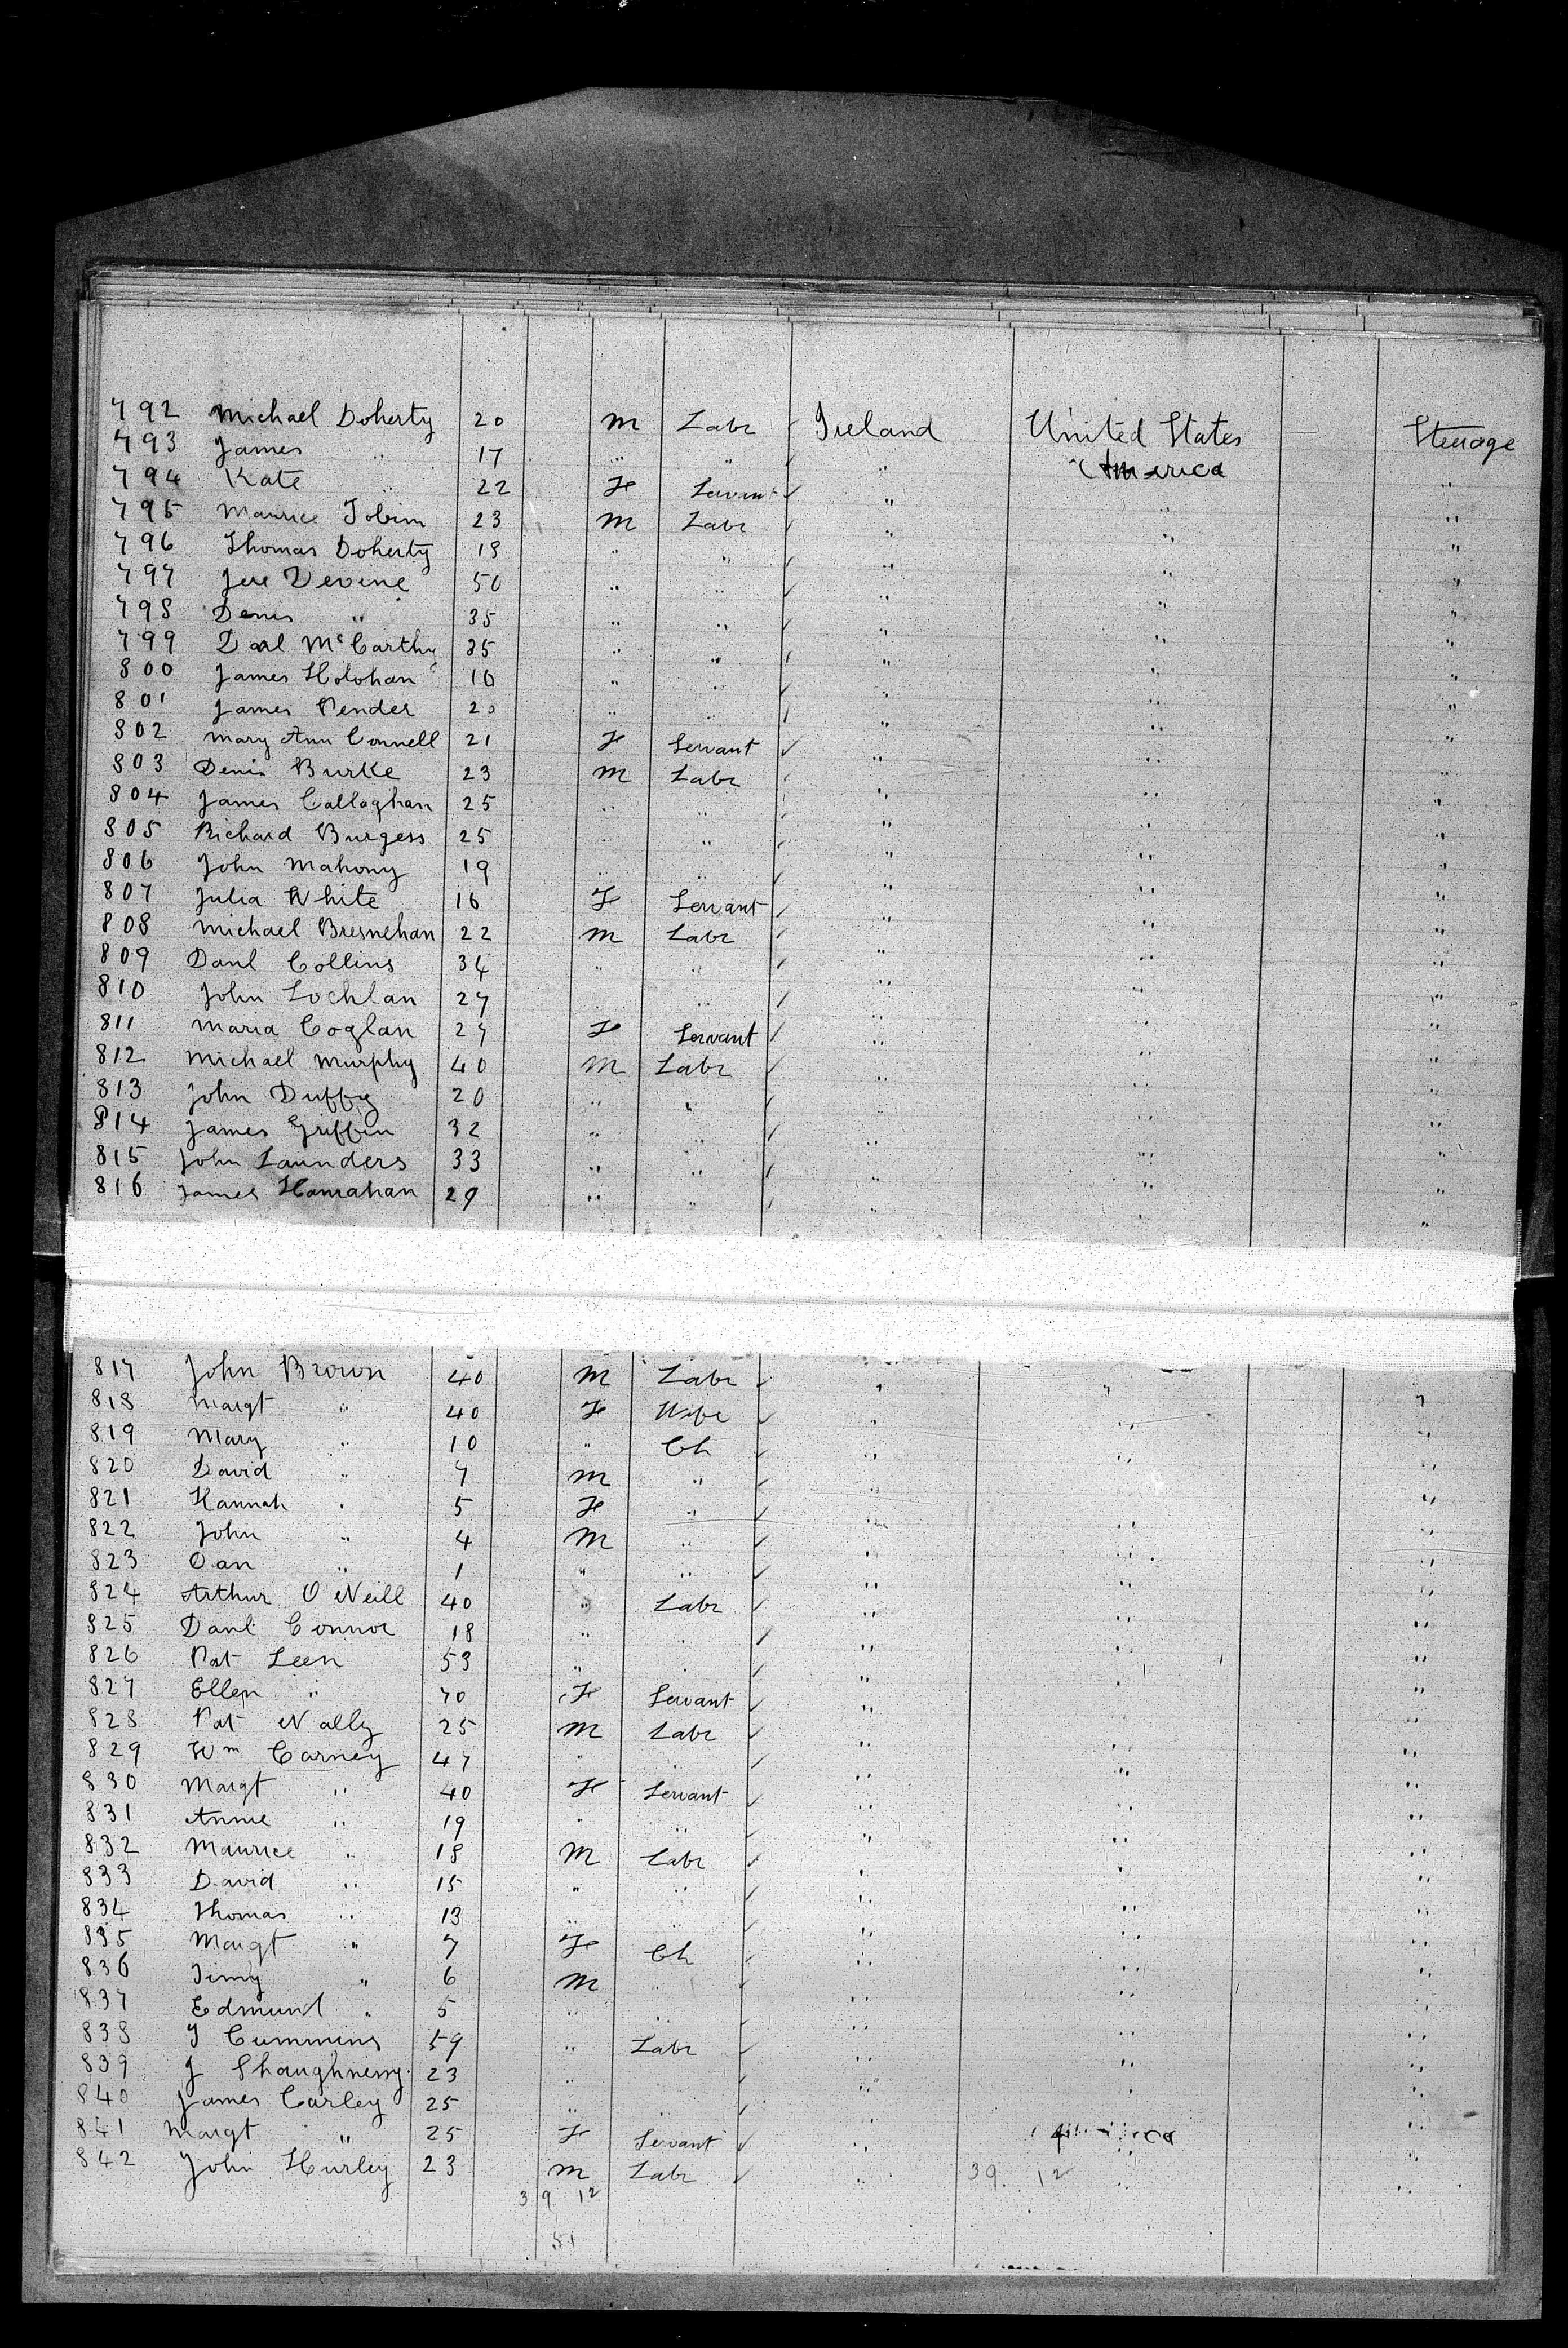 792 Michael Doherty 20 M Labr Ireland United States Steerage
America
793 James " 17 " " " " "
794 Kate " 22 F Servant " " "
795 Maurice Tobin 23 M Labr " " "
796 Thomas Doherty 18 " " " " "
797 Jere Devine 50 " " " " "
798 Denis " 35 " " " " "
799 Danl McCarthy 35 " " " " "
800 James Holohan 16 " " " " "
801 James Pender 20 " " " " "
802 Mary Ann Connell 21 F Servant " " "
803 Denis Burke 23 M Labr " " "
804 James Callaghan 25 " " " " "
805 Richard Burgess 25 " " " " "
806 John Mahony 19 " " " " "
807 Julia White 16 F Servant " " "
808 Michael Bresnehan 22 M Labr " " "
809 Danl Collins 34 " " " " "
810 John Lochlan 27 " " " " "
811 Maria Coglan 27 F Servant " " "
812 Michael Murphy 40 M Labr " " "
813 John Duffy 20 " " " " "
814 James Griffin 32 " " " " "
815 John Saunders 33 " " " " "
816 James Hanrahan 29 " " " " "
817 John Brown 40 M Labr " " "
818 Margt " 40 F Wife " " "
819 Mary " 10 " Ch " " "
820 David " 7 M " " " "
821 Hannah " 5 F " " " "
822 John " 4 M " " " "
823 Dan " 1 " " " " "
824 Arthur O'Neill 40 " Labr " " "
825 Danl Connor 18 " " " " "
826 Pat Leen 53 " " " " "
827 Ellen " 40 F Servant " " "
828 Pat Nally 25 M Labr " " "
829 Wm Carney 47 " " " " "
830 Margt " 40 F Servant " " "
831 Annie " 19 " " " " "
832 Maurice " 18 M Labr " " "
833 David " 15 " " " " "
834 Thomas " 13 " " " " "
835 Margt " 7 F Ch " " "
836 Timy " 6 M " " " "
837 Edmund " 5 " " " " "
838 J Cummins 59 " Labr " " "
839 J Shaughnessy 23 " " " " "
840 James Carley 25 " " " " "
841 Margt " 25 F Servant " " "
842 John Hurley 23 M Labr " " "
39 12 39 12
51